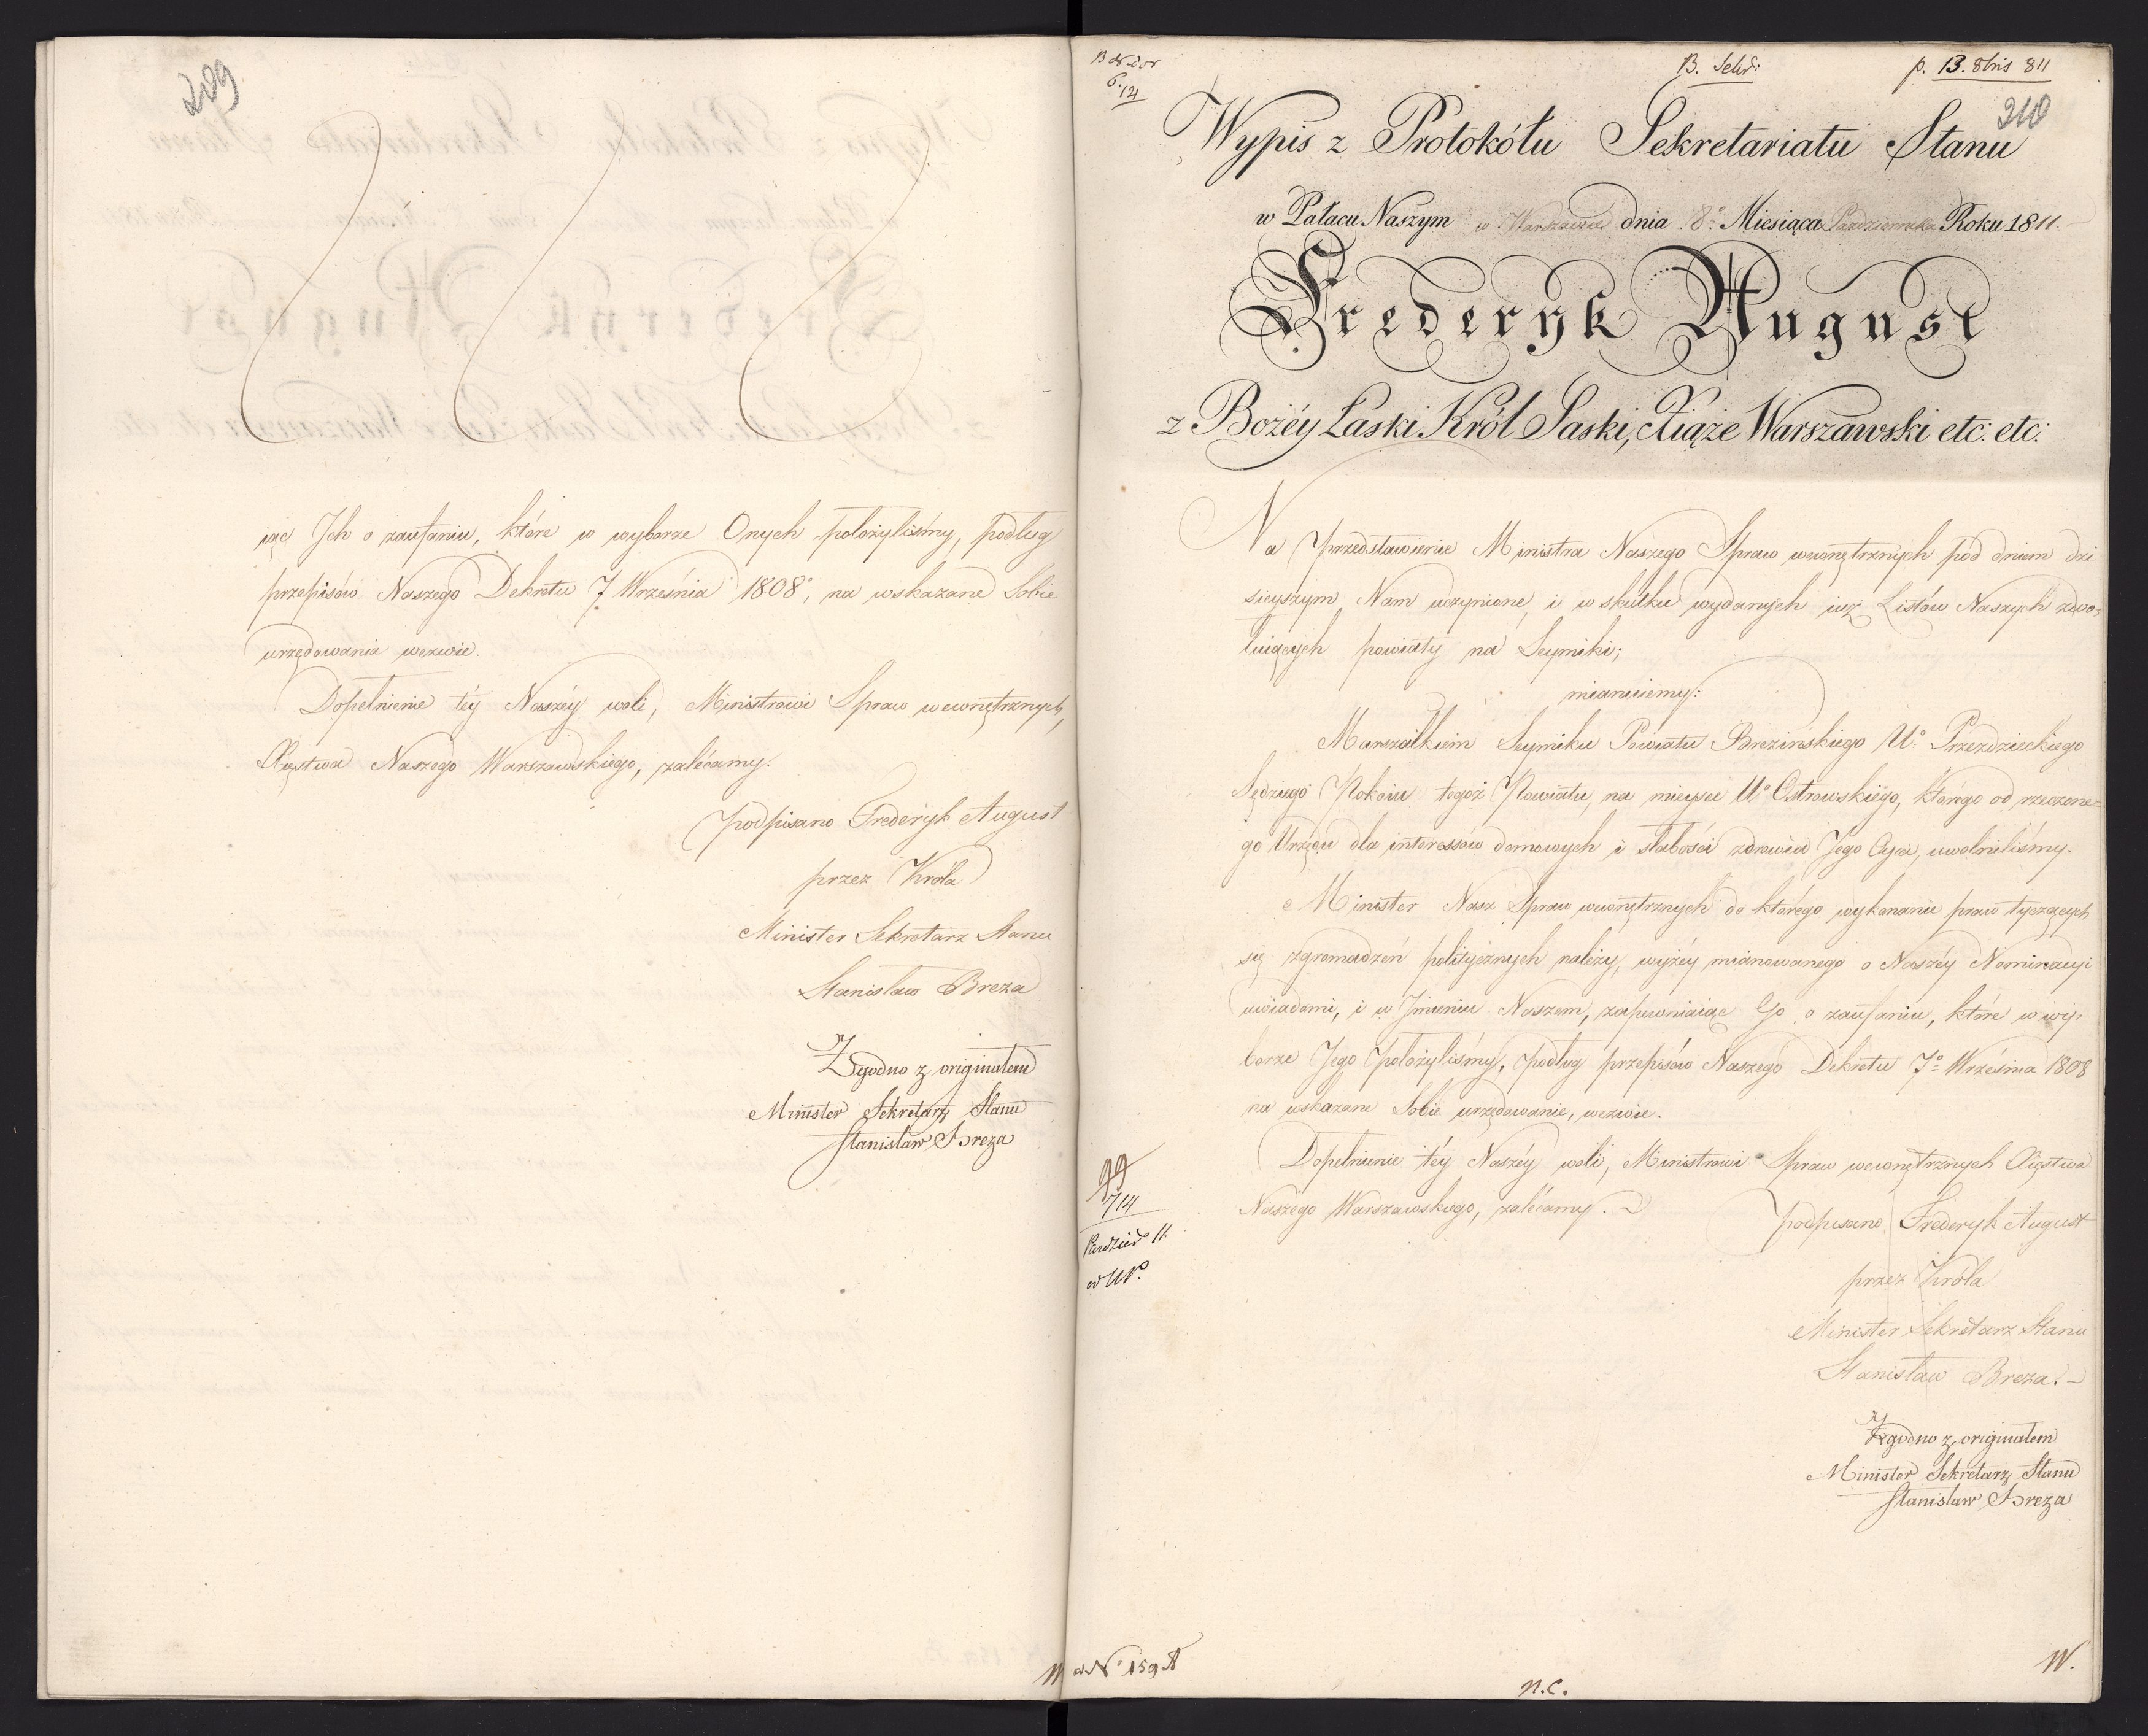 209
iąc Ich o zaufaniu, które w wyborze Onych położyliśmy, podług
przepisów Naszego Dekretu 7 Września 1808°, na wskazane Sobie
urzędowania wezwie.
Dopełnienie téy Naszéy woli, Ministrowi Spraw wewnętrznych,
Xięstwa Naszego Warszawskiego, zalécamy.
podpisano Frederyk August
przez Króla
Minister Sekretarz Stanu
Stanisław Breza
Zgodno z originałem
Minister Sekretarz Stanu
Stanisław Breza
p. 13. 8bris 811
210
Wypis z Protokółu Sekretariatu Stanu
w Pałacu Naszym w Warszawie dnia 8° Miesiąca Października Roku 1811.
Frederyk August
z Bożéy Łaski Król Saski, Xiąże Warszawski etc: etc:
Na przedstawienie Ministra Naszego Spraw wewnętrznych pod dniem dzi
sieyszym Nam uczynione, i w skutku wydanych iuż Listów Naszych zwo-
łuiących powiaty na Seymiki;
mianuiemy:
Marszałkiem Seymiku Powiatu Brezińskiego U° Przezdzieckiego
Sędziego Pokoiu tegoż Powiatu, na mieysce U° Ostrowskiégo, którego od rzeczone-
go Urzędu dla interessów domowych i słabości zdrowia Jego Oyca, uwolniliśmy.
Minister Nasz Spraw wewnętrznych do którego wykonanie praw tyczących
się zgromadzeń politycznych należy, wyżéy mianowanego o Naszéy Nominacyi
uwiadomi, i w Jmieniu Naszem, zapewniaiąc Go o zaufaniu, które w wy-
borze Jego położyliśmy, podług przepisów Naszego Dekretu 7° Września 1808
na wskazane Sobie urzędowanie, wezwie.
Dopełnienie téy Naszéy woli, Ministrowi Spraw wewnętrznych Xięstwa
Naszego Warszawskiego, zalécamy.
podpisano Frederyk August
przez Króla
Minister Sekretarz Stanu
Stanisław Breza.
Zgodno z originałem
Minister Sekretarz Stanu
Stanisław Breza
714
N° 159
n.c.
W.